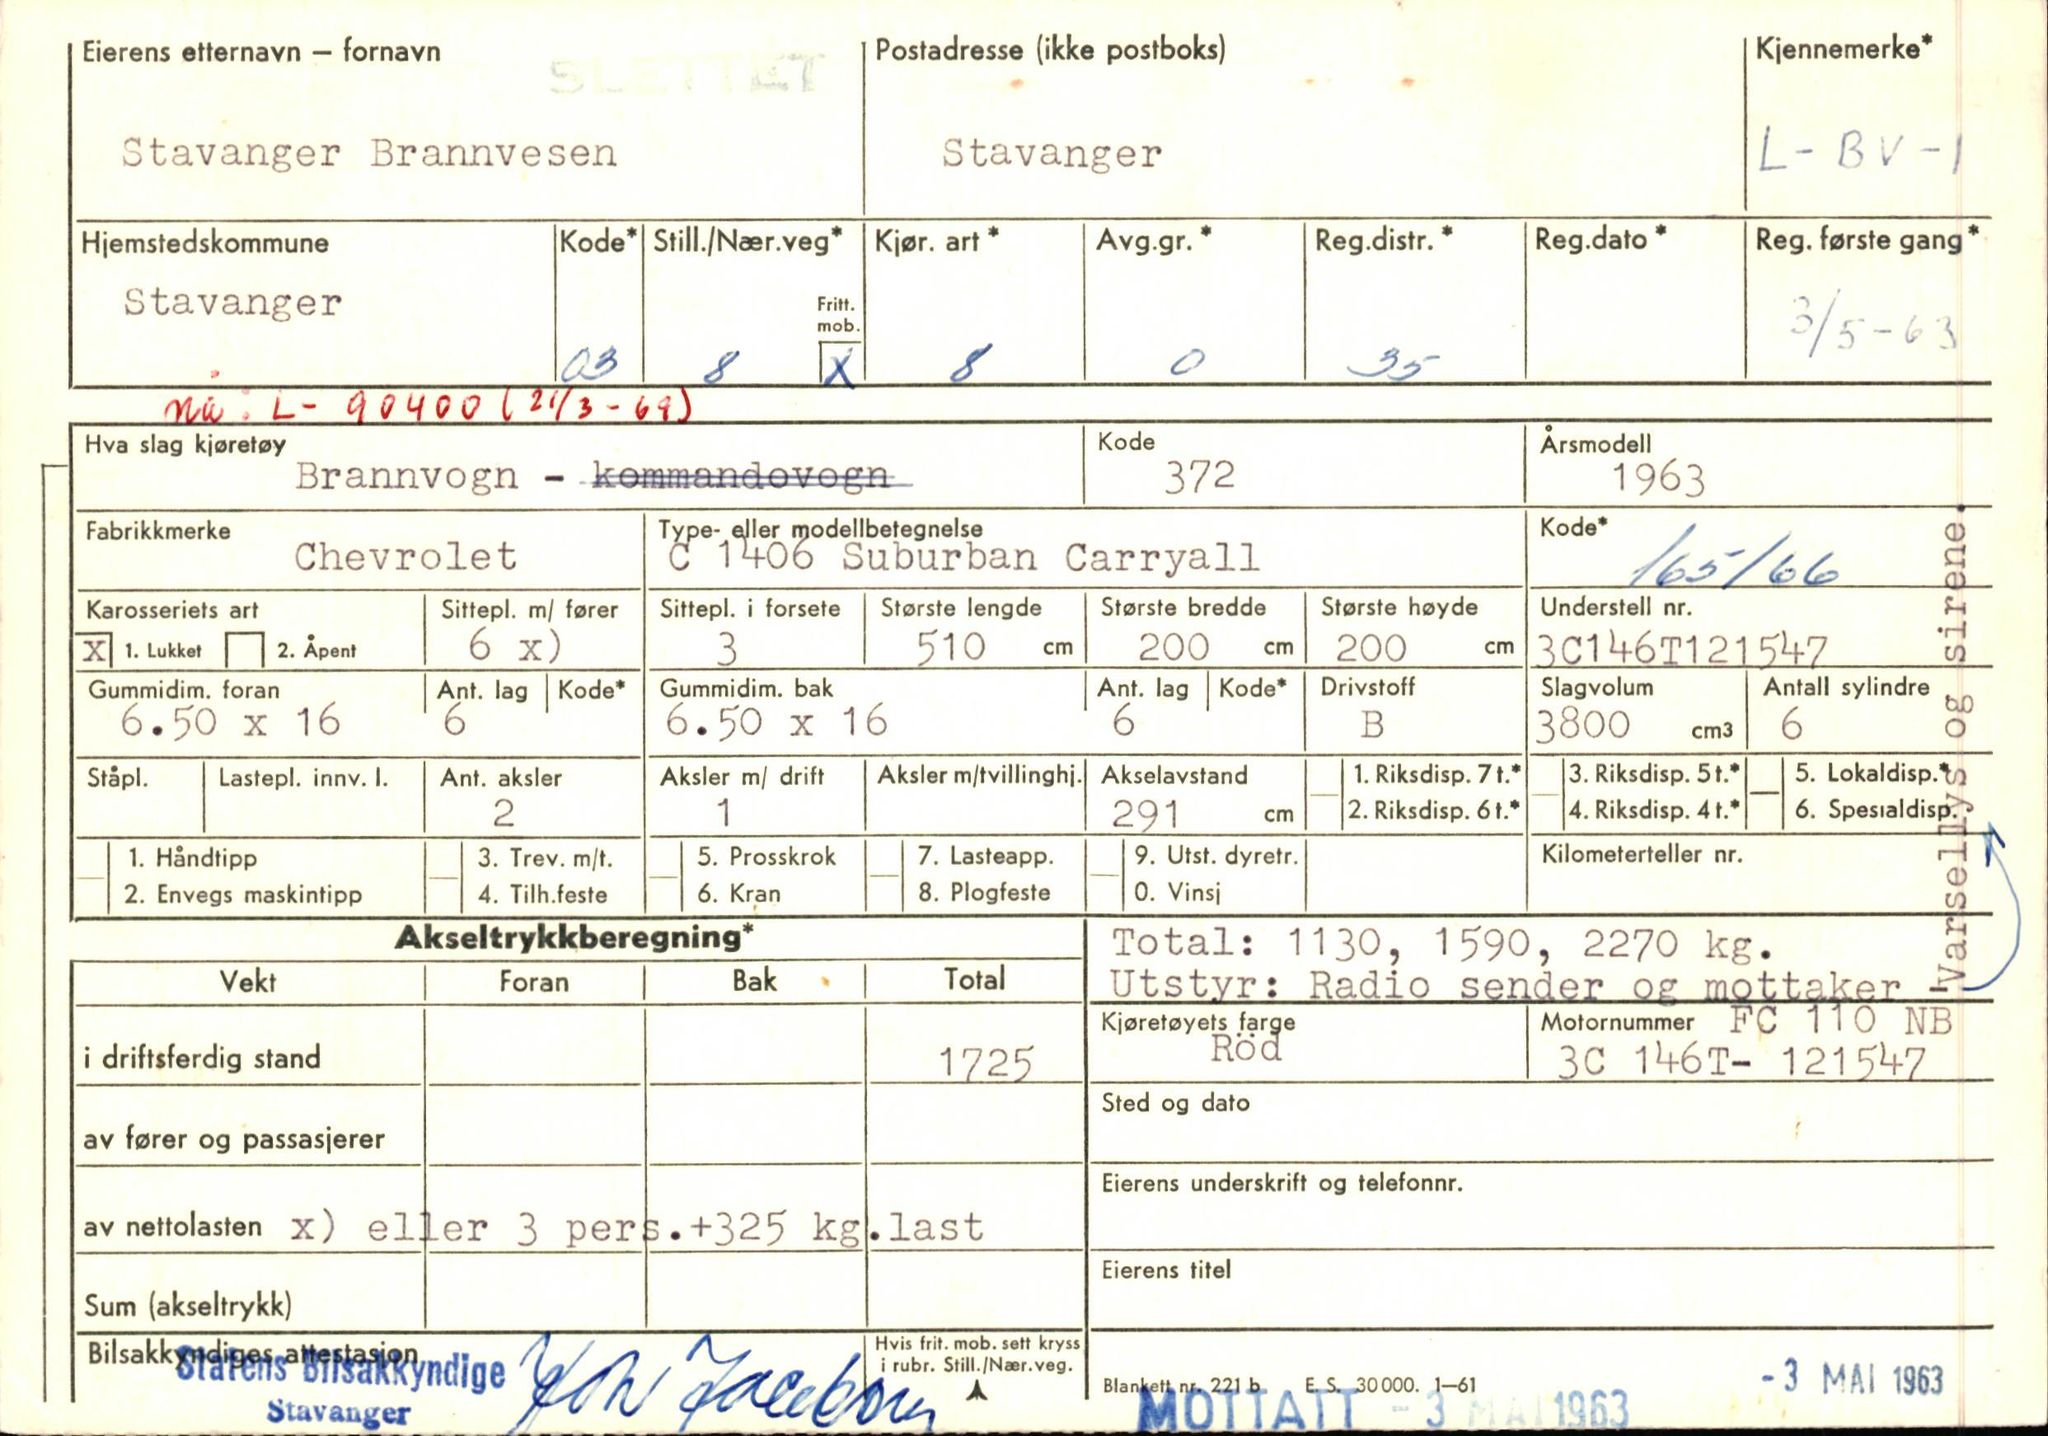 Eierens etternavn — fornavn
SLETTET
Postadresse (ikke postboks)
Kjennemerke*
Stavanger Brannvesen
Stavanger
L-BV-1
Hjemstedskommune
Kode*
Still./Nær.veg*
Kjør. art *
Avg.gr. *
Reg.distr. *
Reg.dato *
Reg. første gang*
Stavanger
Fritt.
mob.
03
8
X
8
0
35
3/5-63
nå: L- 90400 (21/3-69)
Hva slag kjøretøy
Brannvogn - kommandovogn
Kode
372
Årsmodell
1963
Fabrikkmerke
Chevrolet
Type- eller modellbetegnelse
C 1406 Suburban Carryall
Kode*
165/66
Karosseriets art
X 1. Lukket 2. Åpent
Sittepl. m/ fører
6 x)
Sittepl. i forsete
3
Største lengde
510 cm
Største bredde
200 cm
Største høyde
200 cm
Understell nr.
3C146T121547
Gummidim. foran
6.50 x 16
Ant. lag
6
Kode*
Gummidim. bak
6.50 x 16
Ant. lag
6
Kode*
Drivstoff
B
Slagvolum
3800 cm3
Antall sylindre
6
Ståpl.
Lastepl. innv. l.
Ant. aksler
2
Aksler m/ drift
1
Aksler m/tvillinghj.
Akselavstand
291 cm
1. Riksdisp. 7 t.*
2. Riksdisp. 6 t.*
3. Riksdisp. 5 t.*
4. Riksdisp. 4 t.*
5. Lokaldisp.*
6. Spesialdisp.
1. Håndtipp
2. Envegs maskintipp
3. Trev. m/t.
4. Tilh.feste
5. Prosskrok
6. Kran
7. Lasteapp.
8. Plogfeste
9. Utst. dyretr.
0. Vinsj
Kilometerteller nr.
Akseltrykkberegning*
Vekt
Foran
Bak
Total
i driftsferdig stand
1725
av fører og passasjerer
av nettolasten x) eller 3 pers.+325 kg.last
Sum (akseltrykk)
Total: 1130, 1590, 2270 kg.
Utstyr: Radio sender og mottaker
Varsellys og sirene.
Kjøretøyets farge
Röd
Motornummer FC 110 NB
3C 146T- 121547
Sted og dato
Eierens underskrift og telefonnr.
Eierens titel
Bilsakkyndiges attestasjon
Statens Bilsakkyndige
Stavanger
Hvis frit. mob. sett kryss
i rubr. Still./Nær.veg.
Blankett nr. 221 b E. S. 30 000. 1—61
MOTTATT - 3 MAI 1963
- 3 MAI 1963